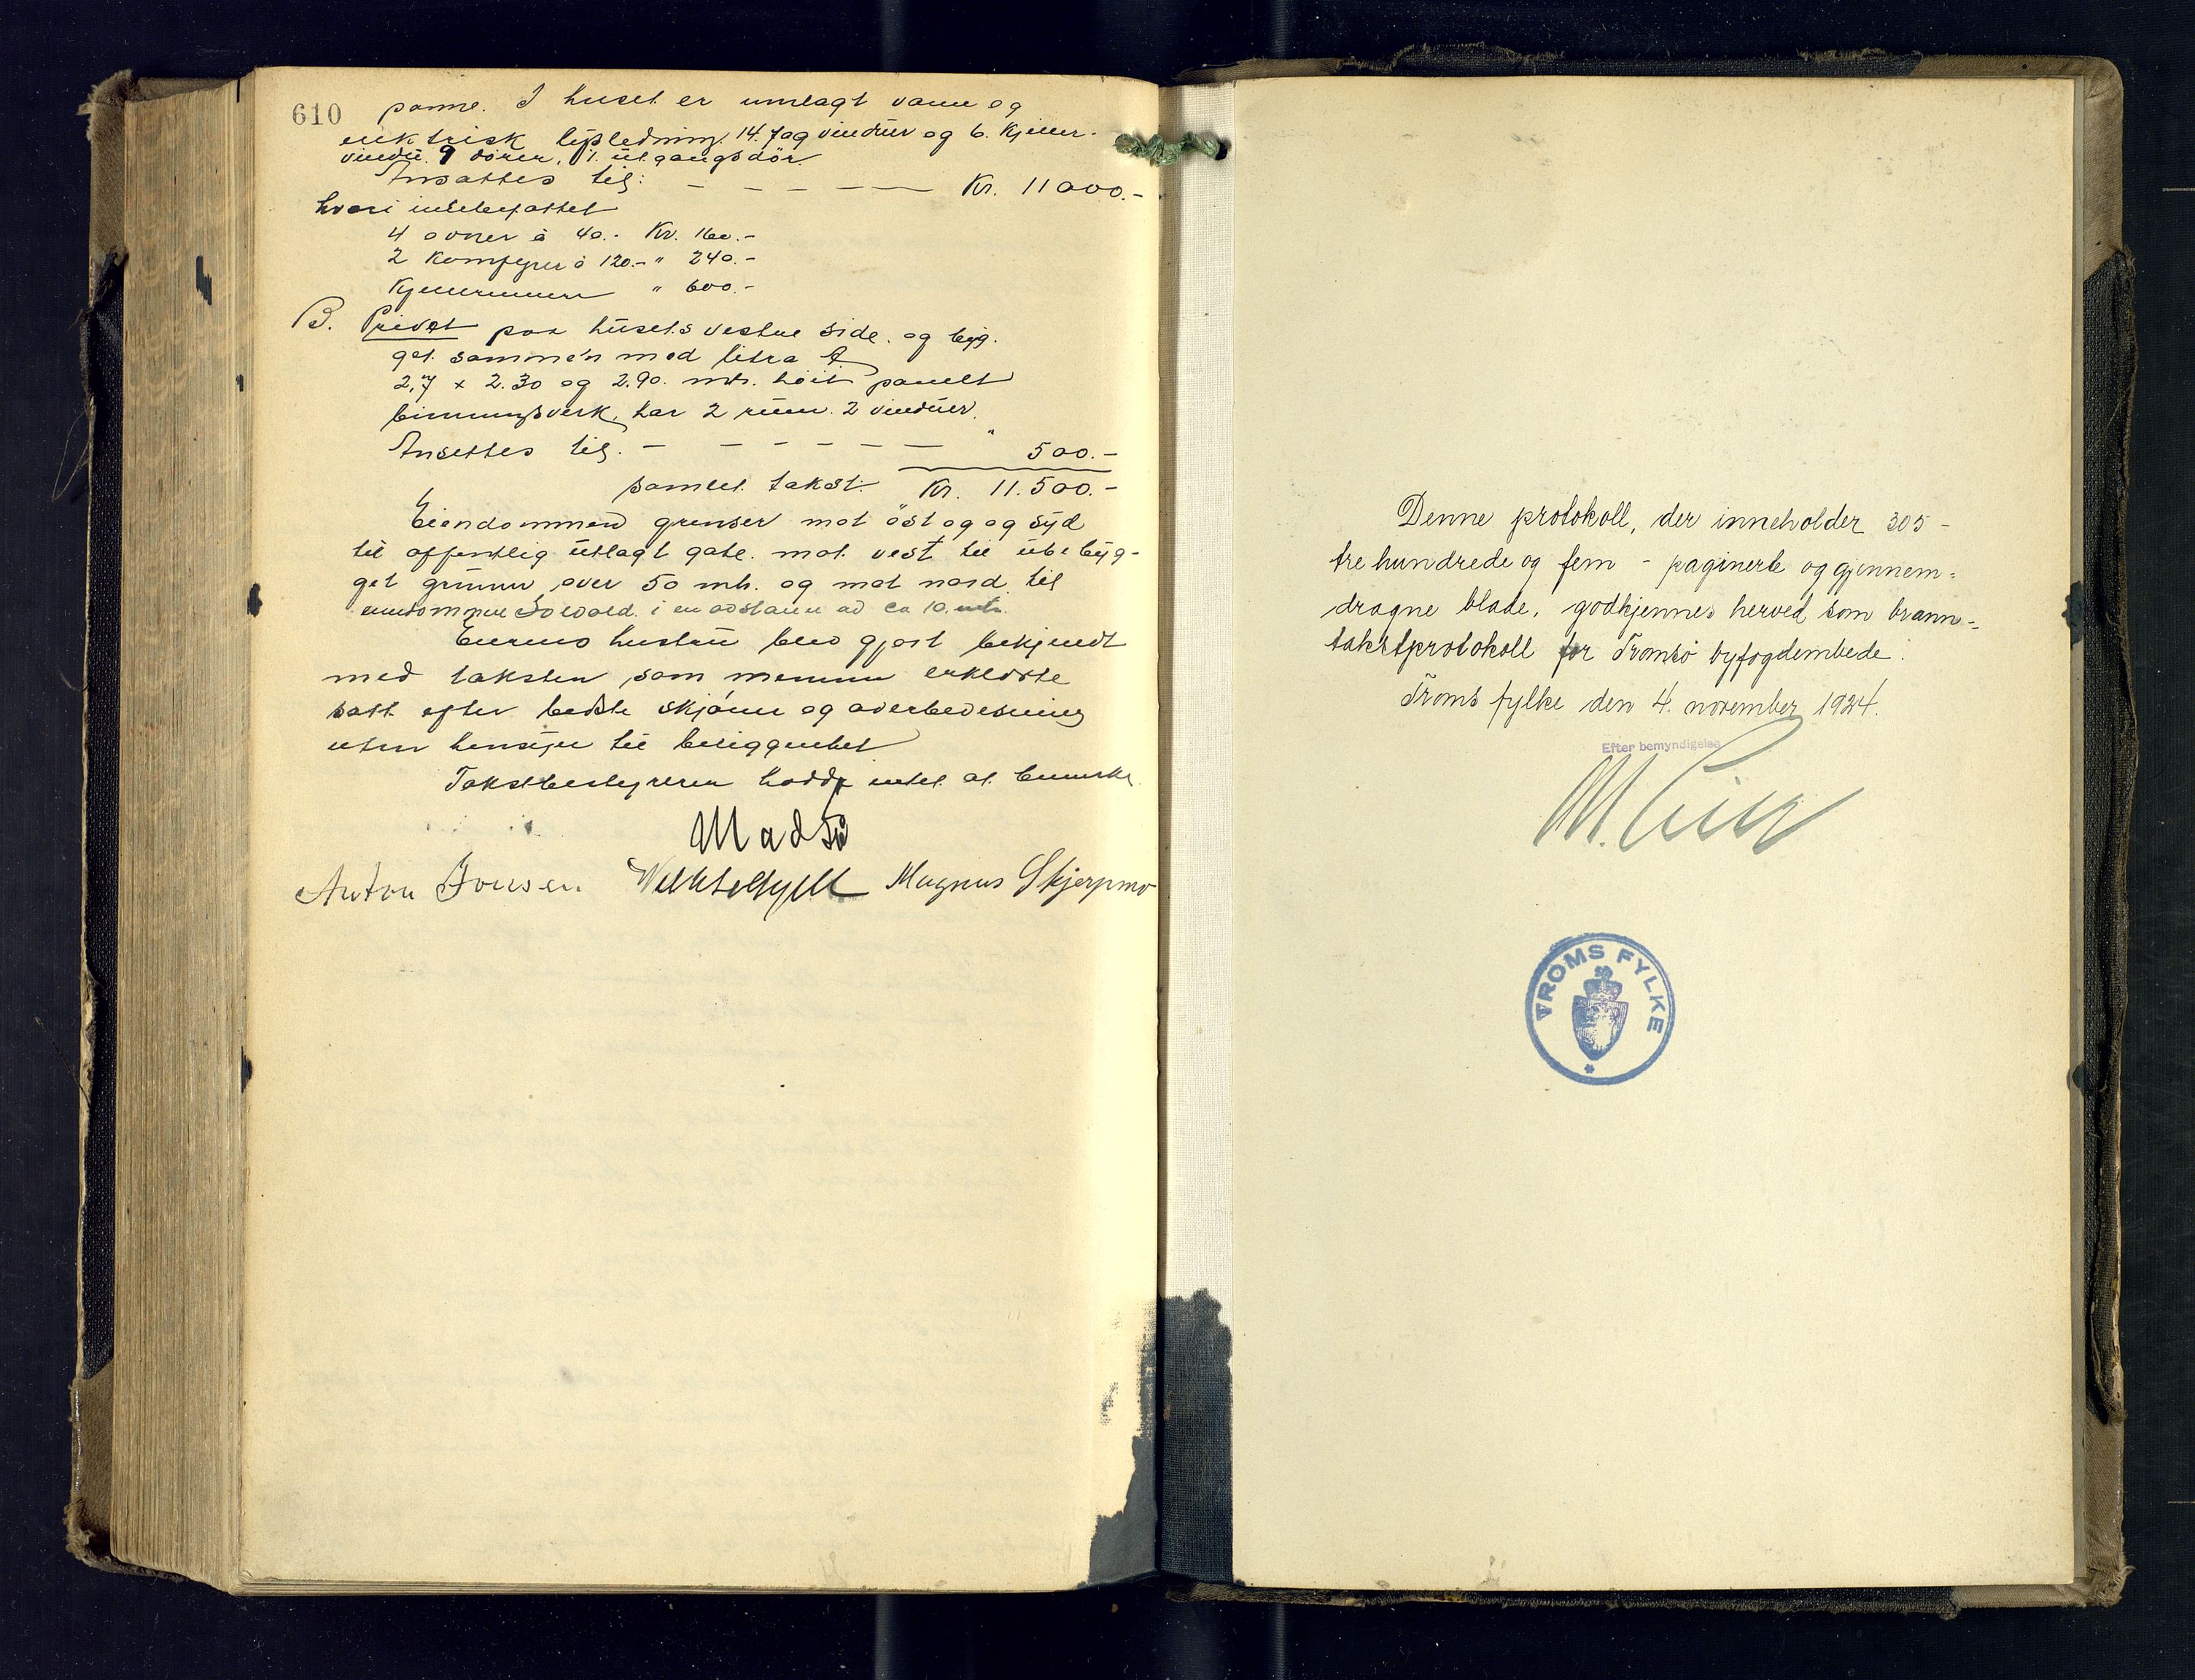 610 panne. I huset er innlagt vann og
elektrisk lysledning. 14. fag vinduer og 6. kjeller-
vindu. 9 dører, 1. utgangsdör.
Ansættes til: - - - - - Kr. 11000.-
hvori indebefattet
4 ovner à 40.- Kr. 160.-
2 komfyrer à 120.- " 240.-
Kjellermuren " 600.-
B. Privet paa husets vestre side. og byg-
get sammen med litra A
2,7 x 2.30 og 2.90. mtr. höit panelt
binningsverk, har 2 rum. 2 vinduer.
Ansettes til. - - - - - - " 500.-
samlet takst. Kr. 11.500.-
Eiendommen grenser mot öst og og syd
til offentlig utlagt gate. mot. vest til ubebyg-
get grunn, over 50 mtr. og mot nord til
eiendommen Solvold. i en avstann av ca 10. mtr.
Eierens hustru blev gjort bekjendt
med taksten som mennene erklærte
satt efter bedste skjönn og overbevisning
uten hensyn til beliggenhet
Takstbestyreren hadde intet at bemerke
Madsö
Anton Jonsen Magnus Skjerpmo
Denne protokoll, der inneholder 305 -
tre hundrede og fem - paginerte og gjennem-
dragne blade, godkjennes herved som brann-
takstprotokoll for Tromsö byfogdembede.
Troms fylke den 4. november 1924.
Efter bemyndigelse
TROMS FYLKE